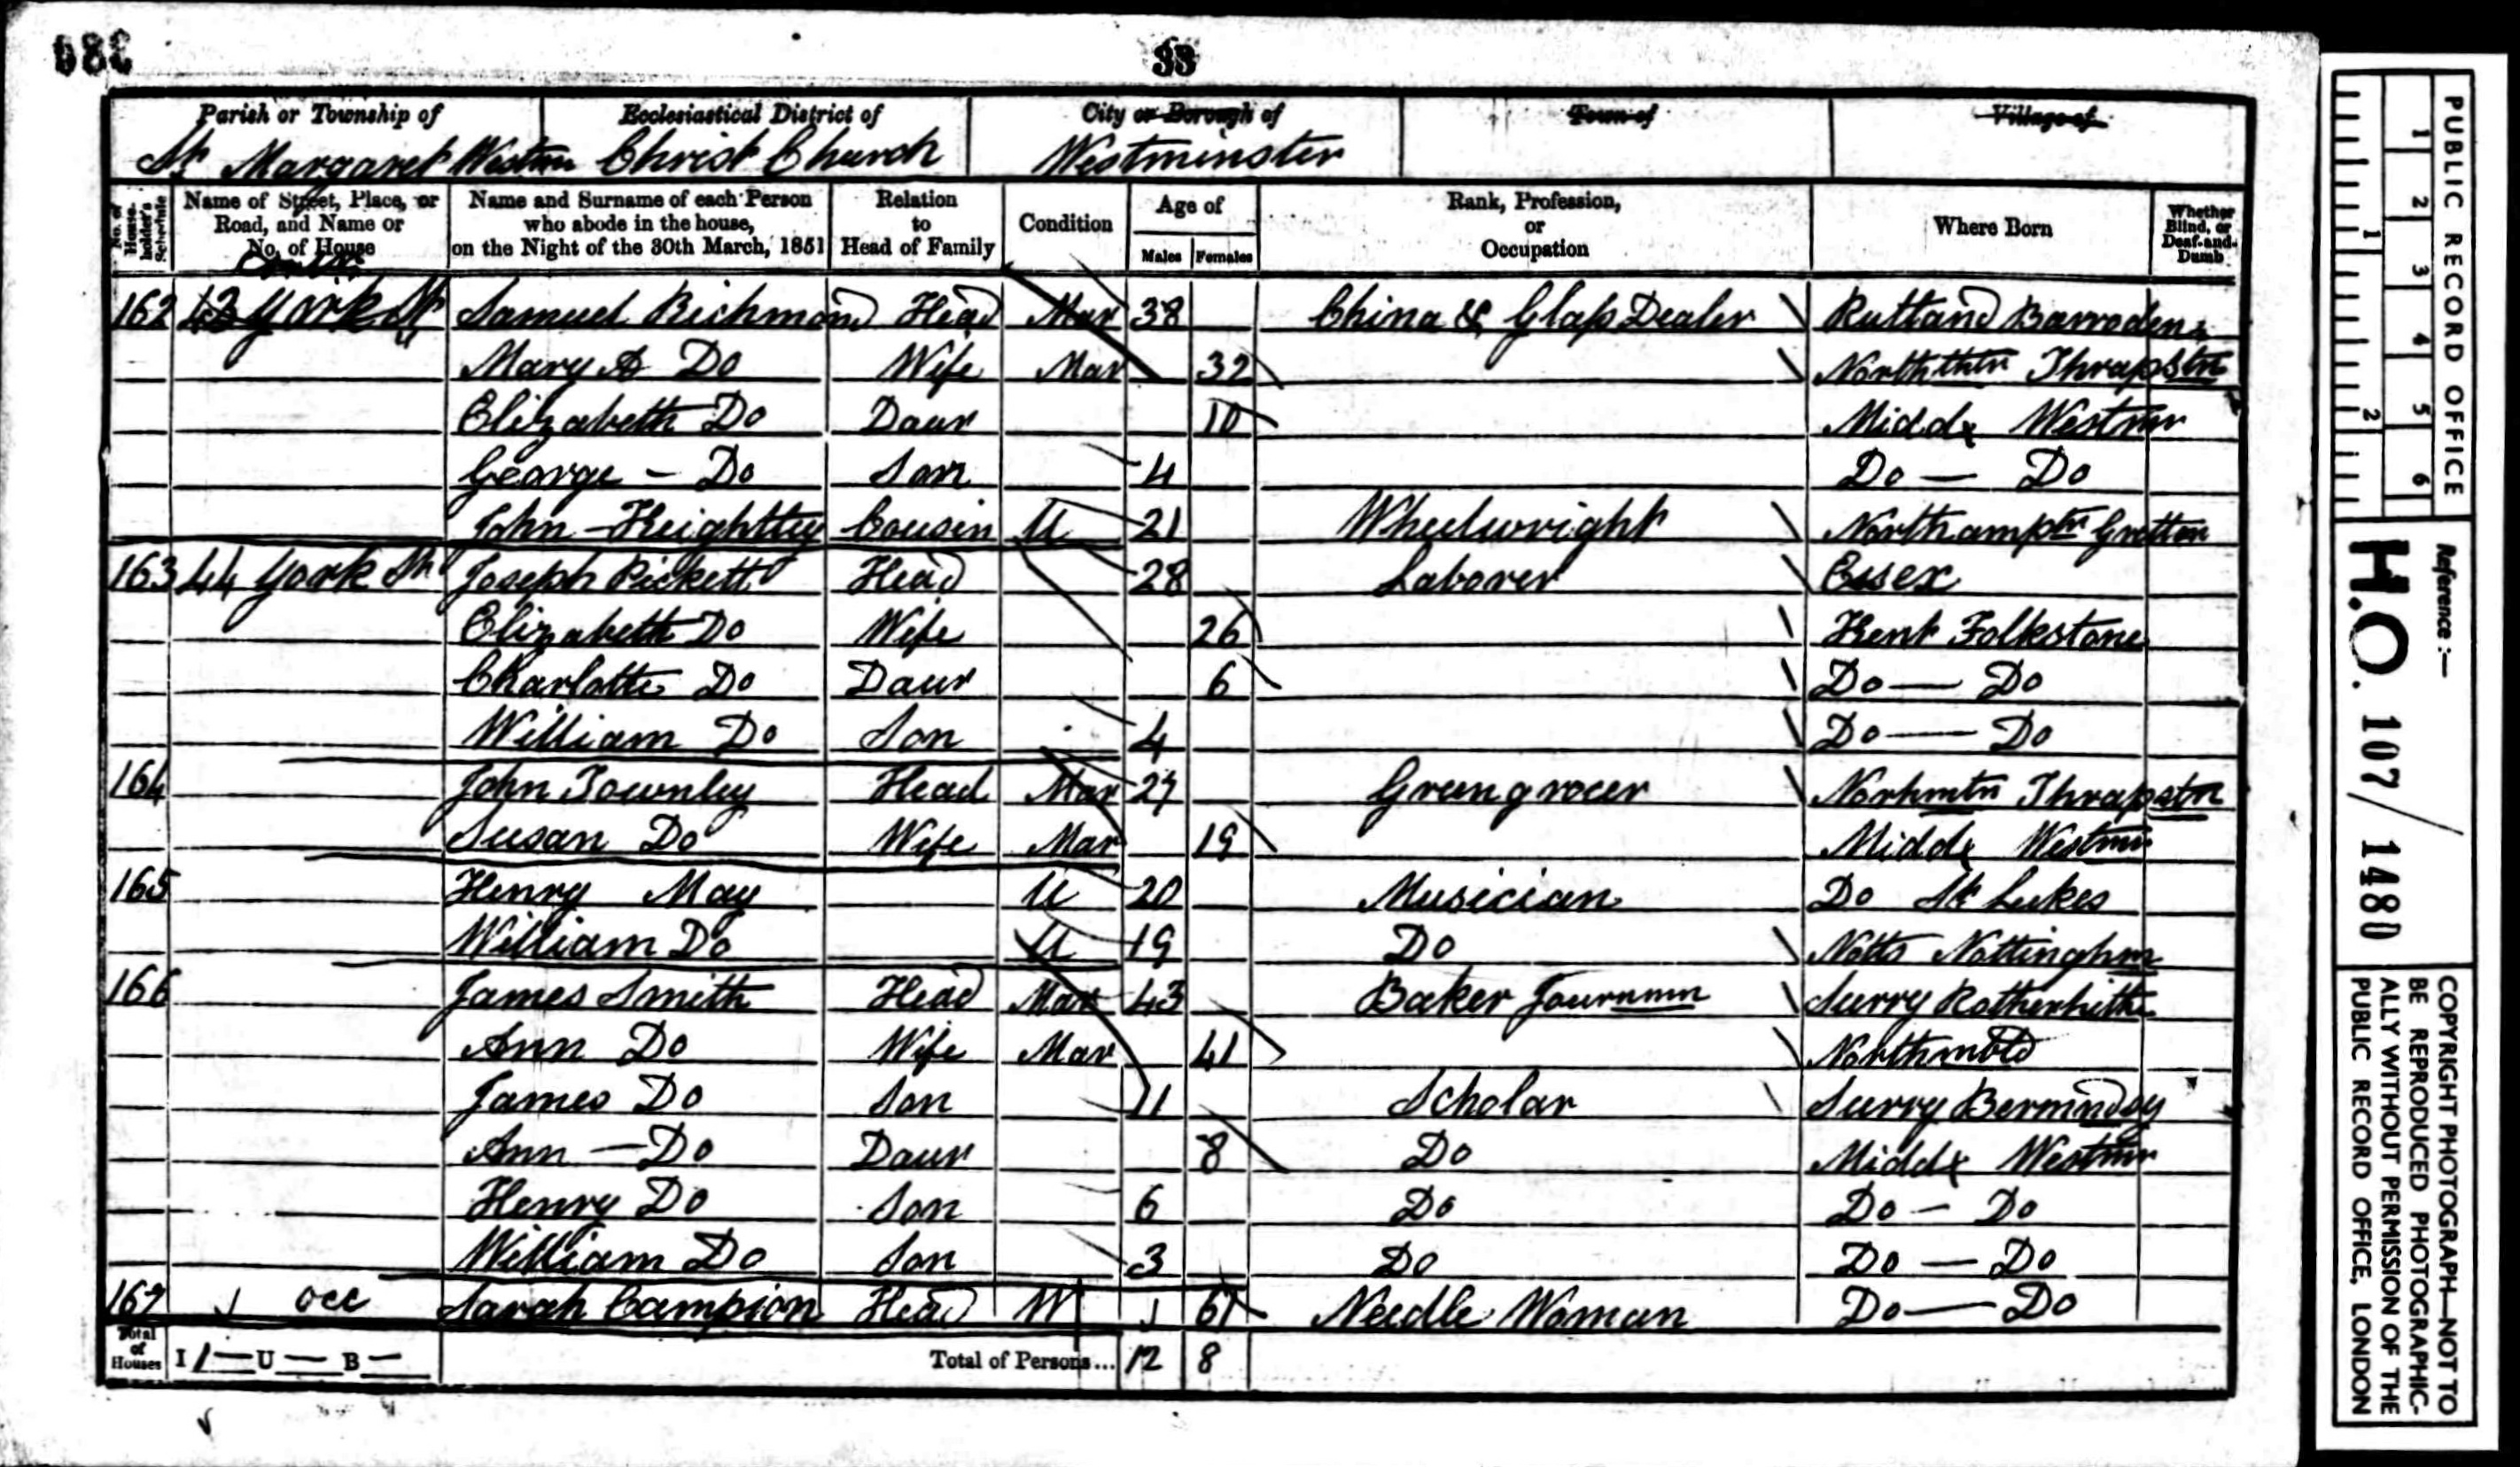 33
Parish or Township of Ecclesiastical District of City or Borough of Town of Village of
St Margaret Westmr Christ Church Westminster
No. of House-holder's Schedule
Name of Street, Place, or Road, and Name or No. of House
Name and Surname of each Person who abode in the house, on the Night of the 30th March, 1851
Relation to Head of Family
Condition
Age of
Males Females
Rank, Profession, or Occupation
Where Born
Whether Blind, or Deaf-and-Dumb
162 43 York St Samuel Richmond Head Mar 38 China & Glass Dealer Rutland Barroden
Mary A Do Wife Mar 32 Northttn Thrapstn
Elizabeth Do Daur 10 Middx Westmr
George - Do Son 4 Do - Do
John Keightley Cousin U 21 Wheelwright Northamptn Gretton
163 44 York St Joseph Pickett Head 28 Laborer Essex
Elizabeth Do Wife 26 Kent Folkstone
Charlotte Do Daur 6 Do - Do
William Do Son 4 Do - Do
164 John Townley Head Mar 27 Greengrocer Norhmtn Thrapstn
Susan Do Wife Mar 19 Middx Westmr
165 Henry May U 20 Musician Do St Lukes
William Do U 19 Do Notts Nottinghm
166 James Smith Head Mar 43 Baker Journmn Surry Rotherhithe
Ann Do Wife Mar 41 Northmbld
James Do Son 11 Scholar Surry Bermndsy
Ann - Do Daur 8 Do Middx Westmr
Henry Do Son 6 Do Do - Do
William Do Son 3 Do Do - Do
167 occ Sarah Campion Head W 61 Needle Woman Do - Do
Total of Houses I 1 - U - B - Total of Persons... 12 8
PUBLIC RECORD OFFICE
1 2 3 4 5 6
1 2
Reference :-
H.O. 107/1480
COPYRIGHT PHOTOGRAPH—NOT TO
BE REPRODUCED PHOTOGRAPHIC-
ALLY WITHOUT PERMISSION OF THE
PUBLIC RECORD OFFICE, LONDON